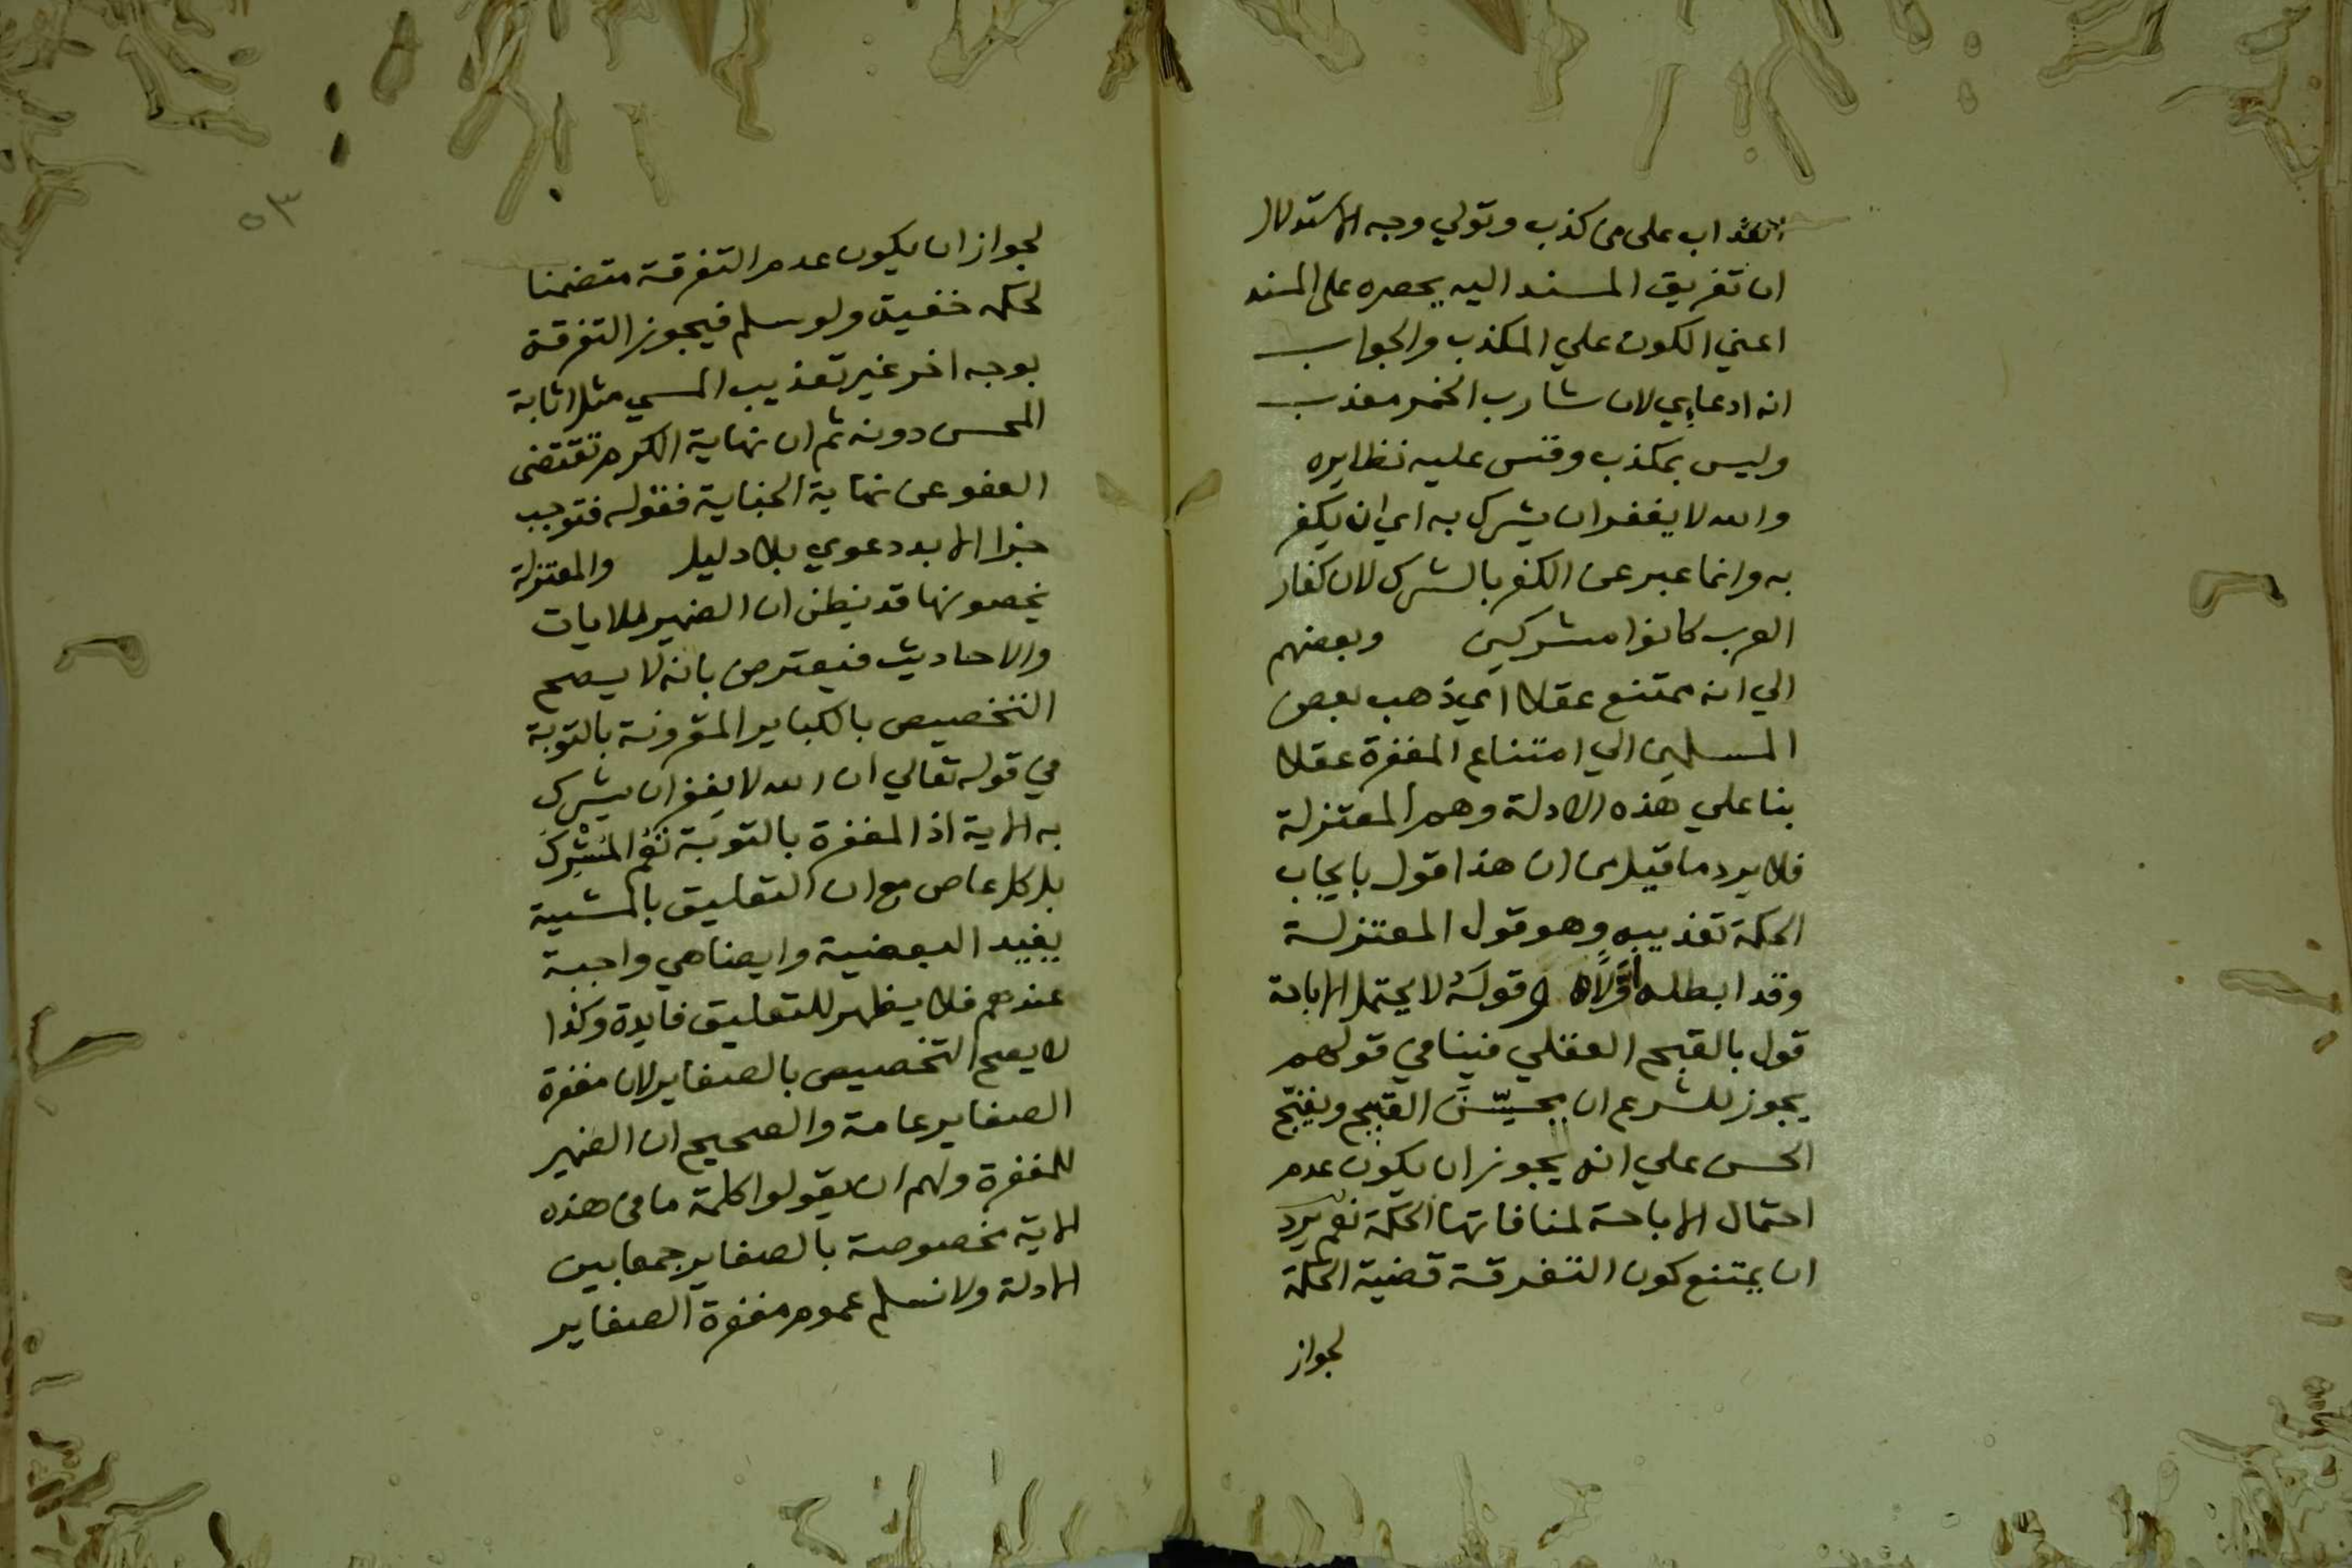 العذاب على من كذب وتولي وجه الاستدلال
ان تفريق المسند اليه يحصره على المسند
اعني الكون علي المكذب والجواب
انه ادعايي لان شارب الخمر معذب
وليس بمكذب وقس عليه نظايره
والله لا يغفر ان يشرك به اي ان يكفر
به وانما عبر عن الكفر بالشرك لان كفار
العرب كانوا مشركين وبعضهم
الي انه ممتنع عقلا اي ذهب بعض
المسلمين الي امتناع المغفرة عقلا
بنا علي هذه الادلة وهم المعتزلة
فلا يرد ما قيل من ان هذا قول بايجاب
الحكمة تعذيبه وهو قول المعتزلة
وقد ابطله اولا وقوله لا يحتمل الاباحة
قول بالقبح العقلي فينافي قولهم
يجوز للشرع ان يحسّن القبيح ويقبح
الحسن علي انه يجوز ان يكون عدم
احتمال الاباحة لمنافاتها الحكمة نعم يرد
ان يمتنع كون التفرقة قضية الحكمة
لجواز
٥٣
لجواز ان يكون عدم التفرقة متضمنا
لحكمه خفية ولو سلم فيجوز التفرقة
بوجه اخر غير تعذيب المسي مثل اثابة
المحسن دونه ثم ان نهاية الكرم تقتضى
العفو عن نهاية الجناية فقوله فتوجب
جزا الابد دعوي بلا دليل والمعتزلة
يخصونها قد يظن ان الضمير للايات
والاحاديث فيعترض بانه لا يصح
التخصيص بالكباير المقرونة بالتوبة
في قوله تعالي ان الله لا يغفر ان يشرك
به الاية اذ المغفرة بالتوبة تعم المشرك
بل كل عاص مع ان التعليق بالمشية
يفيد البعضية وايضا هي واجبة
عندهم فلا يظهر للتعليق فايدة وكذا
لا يصح التخصيص بالصغاير لان مغفرة
الصغاير عامة والصحيح ان الضمير
للمغفرة ولهم ان يقولوا كلمة ما في هذه
الاية مخصوصة بالصغاير جمعا بين
الادلة ولا نسلم عموم مغفرة الصغاير